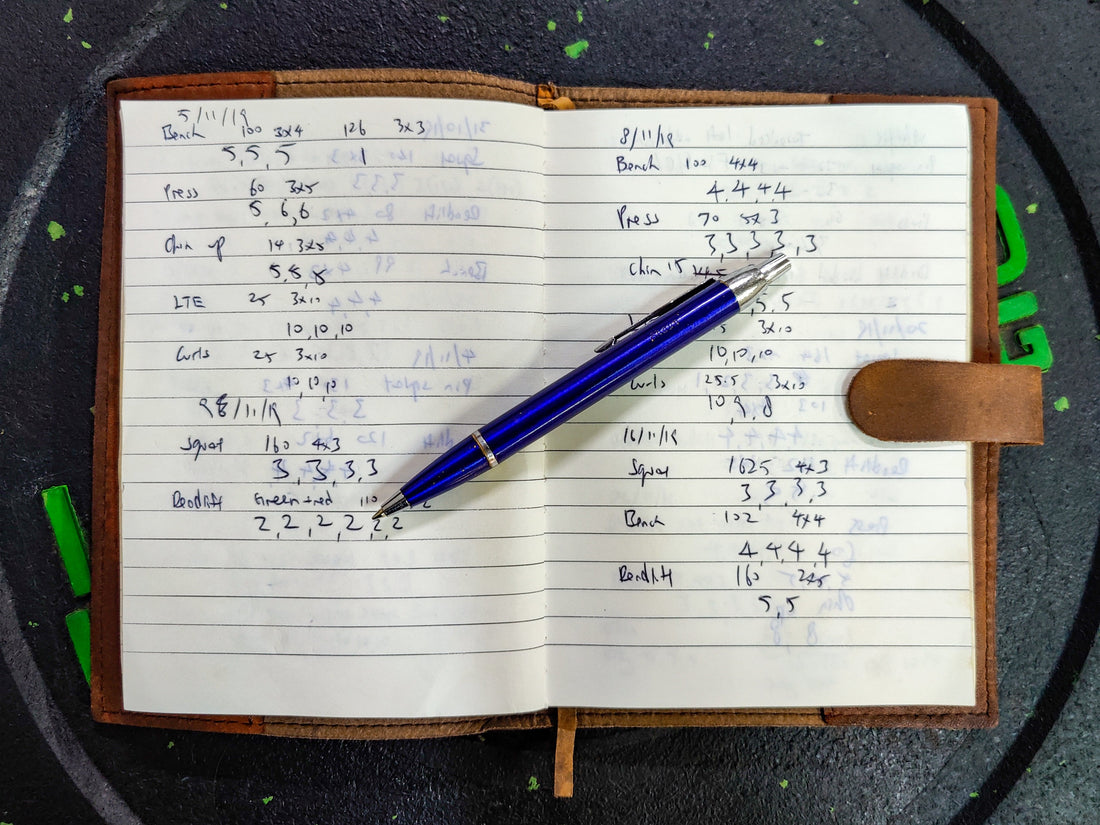 5/11/19
Bench 100 3x4 126 3x3
5,5,5 1
Press 60 3x5
5,6,6
Chin up 14 3x5
5,5,5
LTE 25 3x10
10,10,10
Curls 25 3x10
10,10,10
8/11/19
Squat 160 4x3
3,3,3,3
Deadlift Green+red 110
2,2,2,2,2,2
8/11/19
Bench 100 4x4
4,4,4,4
Press 70 5x3
3,3,3,3,3
Chin 15
5,5
3x10
10,10,10
Curls 25.5 3x10
10,9,8
16/11/19
Squat 162.5 4x3
3,3,3,3
Bench 102 4x4
4,4,4,4
Deadlift 160 2x5
5,5